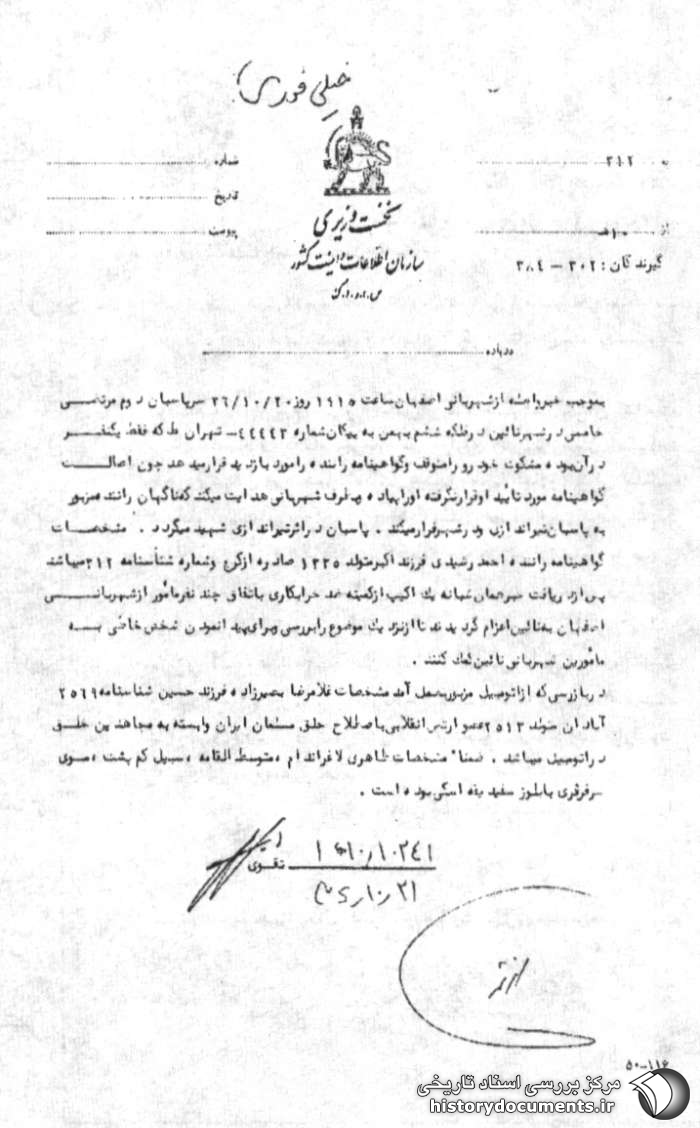 خیلی فوری
به ۳۱۲
شماره
تاریخ
از ۱۰ هـ
پیوست
نخست وزیری
سازمان اطلاعات و امنیت کشور
س.ا.و.ا.ک
گیرندگان : ۳۰۲ – ۳۰۴
درباره
بموجب خبر واصله از شهربانی اصفهان ساعت ۱۹۱۵ روز ۳۶/۱۰/۲۰ سرپاسبان دوم مرتضی
خادمی در شهر نائین در فلکه ششم بهمن به پیکان شماره ۴۴۴۴۳ – تهران ط که فقط یکنفر
در آن بوده مشکوک خودرو را متوقف و گواهینامه راننده را مورد بازدید قرار میدهد چون اصالت
گواهینامه مورد تایید او قرار نگرفته او را پیاده و بطرف شهربانی هدایت میکند که ناگهان راننده مزبور
به پاسبان تیراندازی و در شهر فرار میکند . پاسبان در اثر تیراندازی شهید میگردد . مشخصات
گواهینامه راننده احمد رشیدی فرزند اکبر متولد ۱۳۳۵ صادره از کرج و شماره شناسنامه ۳۱۲ میباشد
پس از دریافت خبر همان شبانه یک اکیپ از کمیته ضد خرابکاری باتفاق چند نفر مأمور از شهربانی
اصفهان به نائین اعزام گردیدند تا از نزدیک موضوع را بررسی و برای پیدا نمودن شخص خاطی به
مأمورین شهربانی نائین کمک کنند .
در بازرسی که از اتومبیل مزبور بعمل آمد مشخصات غلامرضا بصیرزاده فرزند حسین شناسنامه ۲۵۶۹
آبادان متولد ۲۵۱۳ عضو ارتش انقلابی باصطلاح خلق مسلمان ایران وابسته به مجاهدین خلق
در اتومبیل میباشد . ضمناً مشخصات ظاهری لاغراندام ، متوسط القامه ، سبیل کم پشت ، موی
سر فرفری با بلوز سفید یقه اسکی بوده است .
تقوی
۱۰هـ/۱۰۲۴۱
۲۱
۵۰-۱۱۶
مرکز بررسی اسناد تاریخی
historydocuments.ir